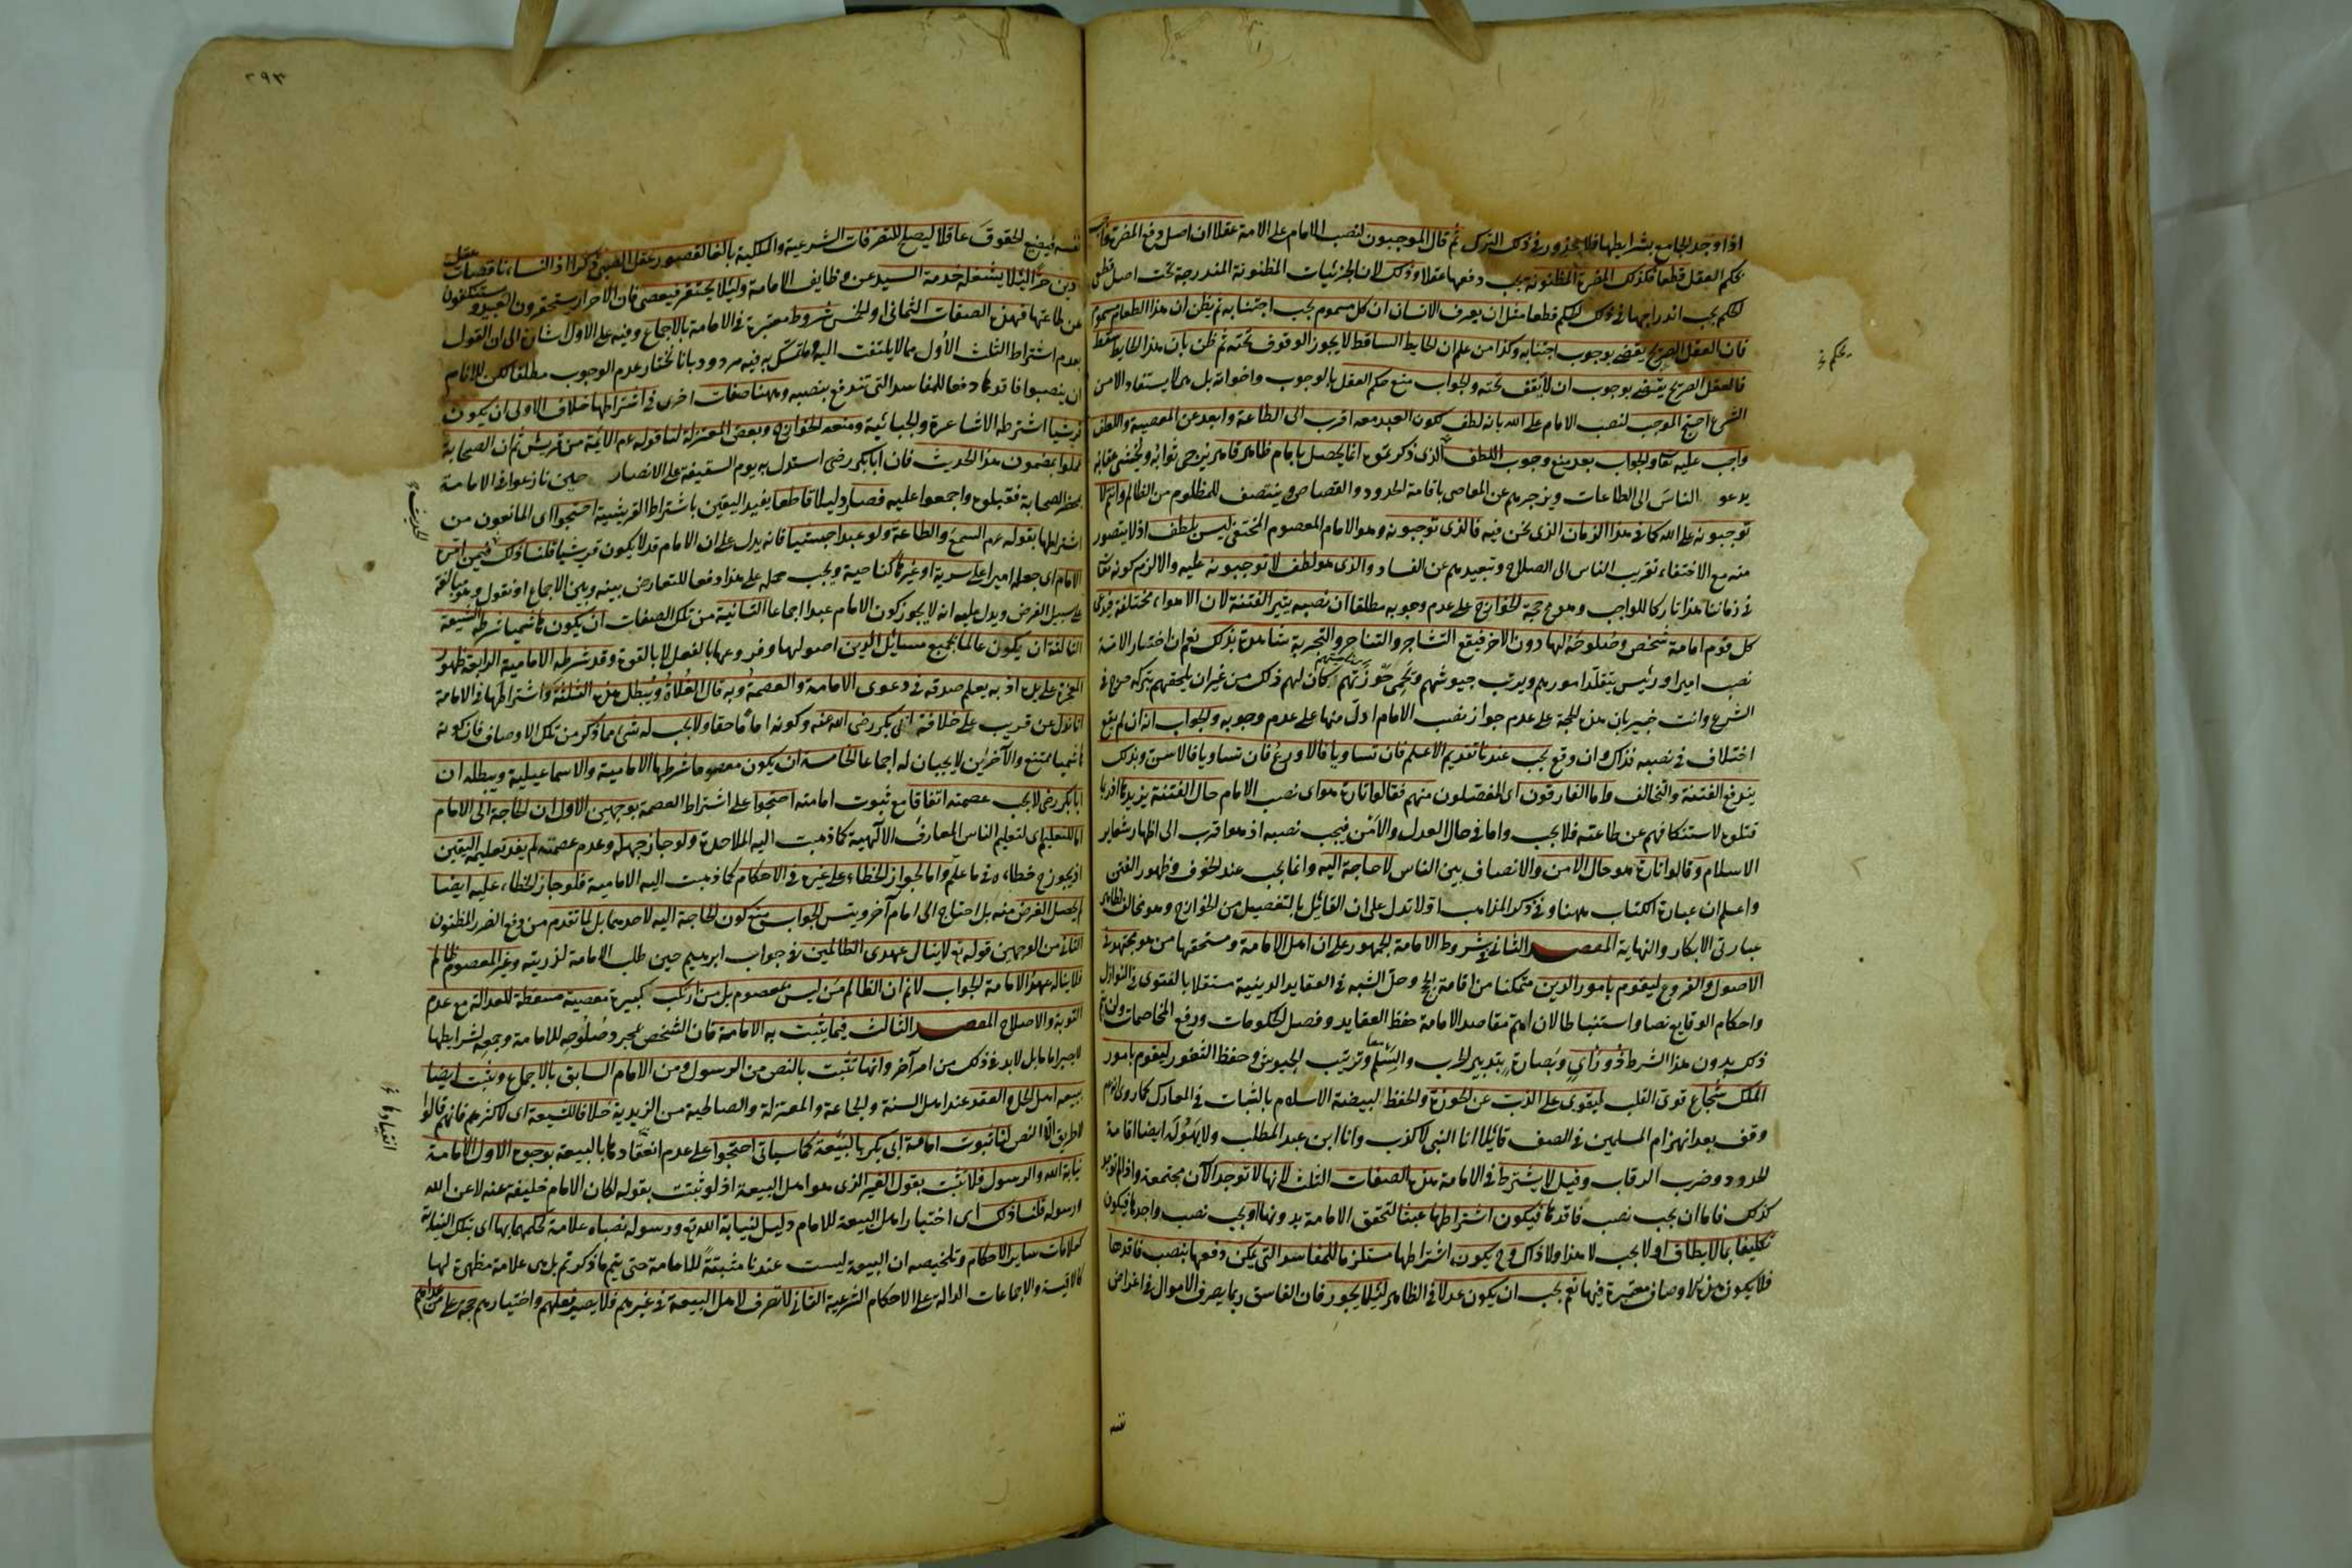 اذا وجد الجامع بشرايطها فلا محذور في ذلك الترك ثم قال الموجبون لنصب الامام على الامة عقلا ان اصل دفع المضرة واجب
بحكم العقل قطعا فكذلك المضرة المظنونة يجب دفعها عقلا وذلك لان الجزئيات المظنونة المندرجة تحت اصل قطعي
الحكم يجب اندراجها في ذلك الحكم قطعا مثل ان يعرف الانسان ان كل مسموم يجب اجتنابه ثم يظن ان هذا الطعام مسموم
فان العقل الصريح يقضي بوجوب اجتنابه وكذا من علم ان الحايط الساقط لا يجوز الوقوف تحته ثم ظن بان هذا الحايط سقط
فالعقل الصريح يقضي بوجوب ان لا يقف تحته والجواب منع حكم العقل بالوجوب واخواته بل هي لا يستفاد الا من
الشرع احتج الموجب لنصب الامام على الله بانه لطف لكون العبد معه اقرب الى الطاعة وابعد عن المعصية واللطف
واجب عليه تعا والجواب بعد منع وجوب اللطف الذي ذكرتموه انما يحصل بامام ظاهر قاهر يرجى ثوابه ويخشى عقابه
يدعو الناس الى الطاعات ويزجرهم عن المعاصي باقامة الحدود والقصاص وينتصف للمظلوم من الظالم وانتم لا
توجبونه على الله كما في هذا الزمان الذي نحن فيه فالذي توجبونه وهو الامام المعصوم المختفي ليس بلطف اذ لا يتصور
منه مع الاختفاء تقريب الناس الى الصلاح وتبعيدهم عن الفساد والذي هو لطف لا توجبونه عليه والا لزم كونه تعا
في زماننا هذا تاركا للواجب وهو مح حجة الخوارج على عدم وجوبه مطلقا ان نصبه يثير الفتنة لان الاهواء مختلفة فيدعي
كل قوم امامة شخص وصلوحه لها دون الاخر فيقع التشاجر والتناحر والتجربة شاهدة بذلك نعم ان اختار الامة
نصب امير او رئيس يتقلد امورهم ويرتب جيوشهم ويحمي حوزتهم كان لهم ذلك من غير ان يلحقهم بتركه حرج في
الشرع وانت خبير بان هذه الحجة على عدم جواز نصب الامام ادل منها على عدم وجوبه والجواب انه ان لم يقع
اختلاف في نصبه فذاك وان وقع يجب عندنا تقديم الاعلم فان تساويا فالاورع فان تساويا فالاسن وبذلك
يندفع الفتنة والتخالف واما الفارقون اي المفصلون منهم فقالوا تارة هو اي نصب الامام حال الفتنة يزيدها اذ ربما
قتلوه لاستنكافهم عن طاعته فلا يجب واما في حال العدل والامن فيجب نصبه اذ هو اقرب الى اظهار شعاير
الاسلام وقالوا تارة هو حال الامن والانصاف بين الناس لا حاجة اليه وانما يجب عند الخوف وظهور الفتن
واعلم ان عبارة الكتاب ههنا وفي ذكر المذاهب اولا تدل على ان القائل بالتفصيل من الخوارج وهو مخالف لظاهر
عبارتي الابكار والنهاية المقصد الثاني في شروط الامامة الجمهور على ان اهل الامامة ومستحقها من هو مجتهد في
الاصول والفروع ليقوم بامور الدين متمكنا من اقامة الحجج وحل الشبه في العقايد الدينية مستقلا بالفتوى في النوازل
واحكام الوقايع نصا واستنباطا لان اهم مقاصد الامامة حفظ العقايد وفصل الحكومات ورفع المخاصمات ولن يتم
ذلك بدون هذا الشرط ذو رأي وبصارة بتدبير الحرب والسلم وترتيب الجيوش وحفظ الثغور ليقوم بامور
الملك شجاع قوي القلب ليقوى على الذب عن الحوزة والحفظ لبيضة الاسلام بالثبات في المعارك كما روي انه عم
وقف بعد انهزام المسلمين في الصف قائلا انا النبي لا كذب وانا ابن عبد المطلب ولا يهوله ايضا اقامة
الحدود وضرب الرقاب وقيل لا يشترط في الامامة هذه الصفات الثلث لانها لا توجد الآن مجتمعة واذا لم توجد
كذلك فاما ان يجب نصب فاقدها فيكون اشتراطها عبثا لتحقق الامامة بدونها او يجب نصب واجدها فيكون
تكليفا بما لا يطاق او لا يجب لا هذا ولا ذاك وح يكون اشتراطها مستلزما للمفاسد التي يمكن دفعها بنصب فاقدها
فلا يكون هذه الاوصاف معتبرة فيها نعم يجب ان يكون عدلا في الظاهر لئلا يجور فان الفاسق ربما يصرف الاموال في اغراض
يحكم خ
٢٩٣
نفسه فيضيع الحقوق عاقلا ليصلح للتصرفات الشرعية والملكية بالغا لقصور عقل الصبي ذكرا اذ النساء ناقصات عقل
ودين حرا لئلا يشغله خدمة السيد عن وظايف الامامة ولئلا يحتقر فيعصى فان الاحرار يستحقرون العبيد ويستنكفون
عن طاعتها فهذه الصفات الثماني او الخمس شروط معتبرة في الامامة بالاجماع وفيه على الاول شارة الى ان القول
بعدم اشتراط الثلث الاول مما لا يلتفت اليه وما تمسك به فيه مردود بانا نختار عدم الوجوب مطلقا لكن للانام
ان ينصبوا فاقدها دفعا للمفاسد التي تندفع بنصبه وههنا صفات اخرى في اشتراطها خلاف الاولى ان يكون
قرشيا اشترطه الاشاعرة والجبائية ومنعه الخوارج وبعض المعتزلة لنا قوله عم الائمة من قريش ثم ان الصحابة
عملوا بمضمون هذا الحديث فان ابا بكر رضي استدل به يوم السقيفة على الانصار حين نازعوا في الامامة
بمحضر الصحابة فقبلوه واجمعوا عليه فصار دليلا قاطعا يفيد اليقين باشتراط القرشية احتجوا اي المانعون من
اشتراطها بقوله عم السمع والطاعة ولو عبدا حبشيا فانه يدل على ان الامام قد لا يكون قرشيا قلنا ذلك فيمن امره
الامام اي جعله اميرا على سرية او غيرها كناحية ويجب حمله على هذا دفعا للتعارض بينه وبين الاجماع او نقول وهو مبالغة
على سبيل الفرض ويدل عليه انه لا يجوز كون الامام عبدا اجماعا الثانية من تلك الصفات ان يكون هاشميا شرطه الشيعة
الثالثة ان يكون عالما بجميع مسائل الدين اصولها وفروعها بالفعل لا بالقوة وقد شرطه الامامية الرابعة ظهور
المعجزة على يده اذ به يعلم صدقه في دعوى الامامة والعصمة وبه قال الغلاة ويبطل هذه الثلثة واشتراطها في الامامة
انا ندل عن قريب على خلافة ابي بكر رضي الله عنه وكونه اماما حقا ولا يجب له شيء مما ذكر من تلك الاوصاف فان كونه
هاشميا ممتنع والآخران لا يجبان له اجماعا الخامسة ان يكون معصوما شرطها الامامية والاسماعيلية ويبطله ان
ابا بكر رضي لا يجب عصمته اتفاقا مع ثبوت امامته احتجوا على اشتراط العصمة بوجهين الاول ان الحاجة الى الامام
اما للتعليم اي لتعليم الناس المعارف الآلهية كما ذهبت اليه الملاحدة ولو جاز جهله وعدم عصمته لم يفد تعليمه اليقين
اذ يجوز ح خطاءه في ما علم واما لجواز الخطاء على غيره في الاحكام كما ذهبت اليه الامامية فلو جاز الخطاء عليه ايضا
لم يحصل الغرض منه بل احتاج الى امام آخر ويتس الجواب منع كون الحاجة اليه لاحدهما بل لما تقدم من دفع الضرر المظنون
الثاني من الوجهين قوله تع لا ينال عهدي الظالمين في جواب ابرهيم حين طلب الامامة لذريته وغير المعصوم ظالم
فلا يناله عهد الامامة الجواب لا نم ان الظالم من ليس بمعصوم بل من ارتكب كبيرة معصية مسقطة للعدالة مع عدم
التوبة والاصلاح المقصد الثالث فيما يثبت به الامامة فان الشخص بمجرد صلوحه للامامة وجمعه لشرايطها
لا يصير اماما بل لا بد في ذلك من امر آخر وانها تثبت بالنص من الرسول ومن الامام السابق بالاجماع ويثبت ايضا
ببيعة اهل الحل والعقد عند اهل السنة والجماعة والمعتزلة والصالحية من الزيدية خلافا للشيعة اي لاكثرهم فانهم قالوا
لا طريق الا النص لنا ثبوت امامة ابي بكر بالبيعة كما سيأتي احتجوا على عدم انعقادها بالبيعة بوجوه الاول الامامة
نيابة الله والرسول فلا تثبت بقول الغير الذي هو اهل البيعة اذ لو ثبتت بقوله لكان الامام خليفة عنه لا عن الله
ورسوله قلنا ذلك اي اختيار اهل البيعة للامام دليل لنيابة الله تع ورسوله نصباه علامة لحكمهما بها اي بتلك النيابة
كعلامات ساير الاحكام وتلخيصه ان البيعة ليست عندنا مثبتة للامامة حتى يتم ما ذكرتم بل هي علامة مظهرة لها
كالاقيسة والاجماعات الدالة على الاحكام الشرعية الثاني لا تصرف لاهل البيعة في غيرهم فلا يصير فعلهم واختيارهم حجة على من عداهم